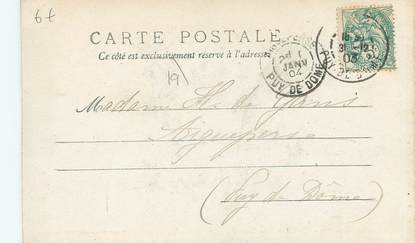 6f
CARTE POSTALE
Ce côté est exclusivement réservé à l'adresse
19
JANV
04
PUY DE DOME
Madame H. de
Aigueperse
(Puy de Dôme)